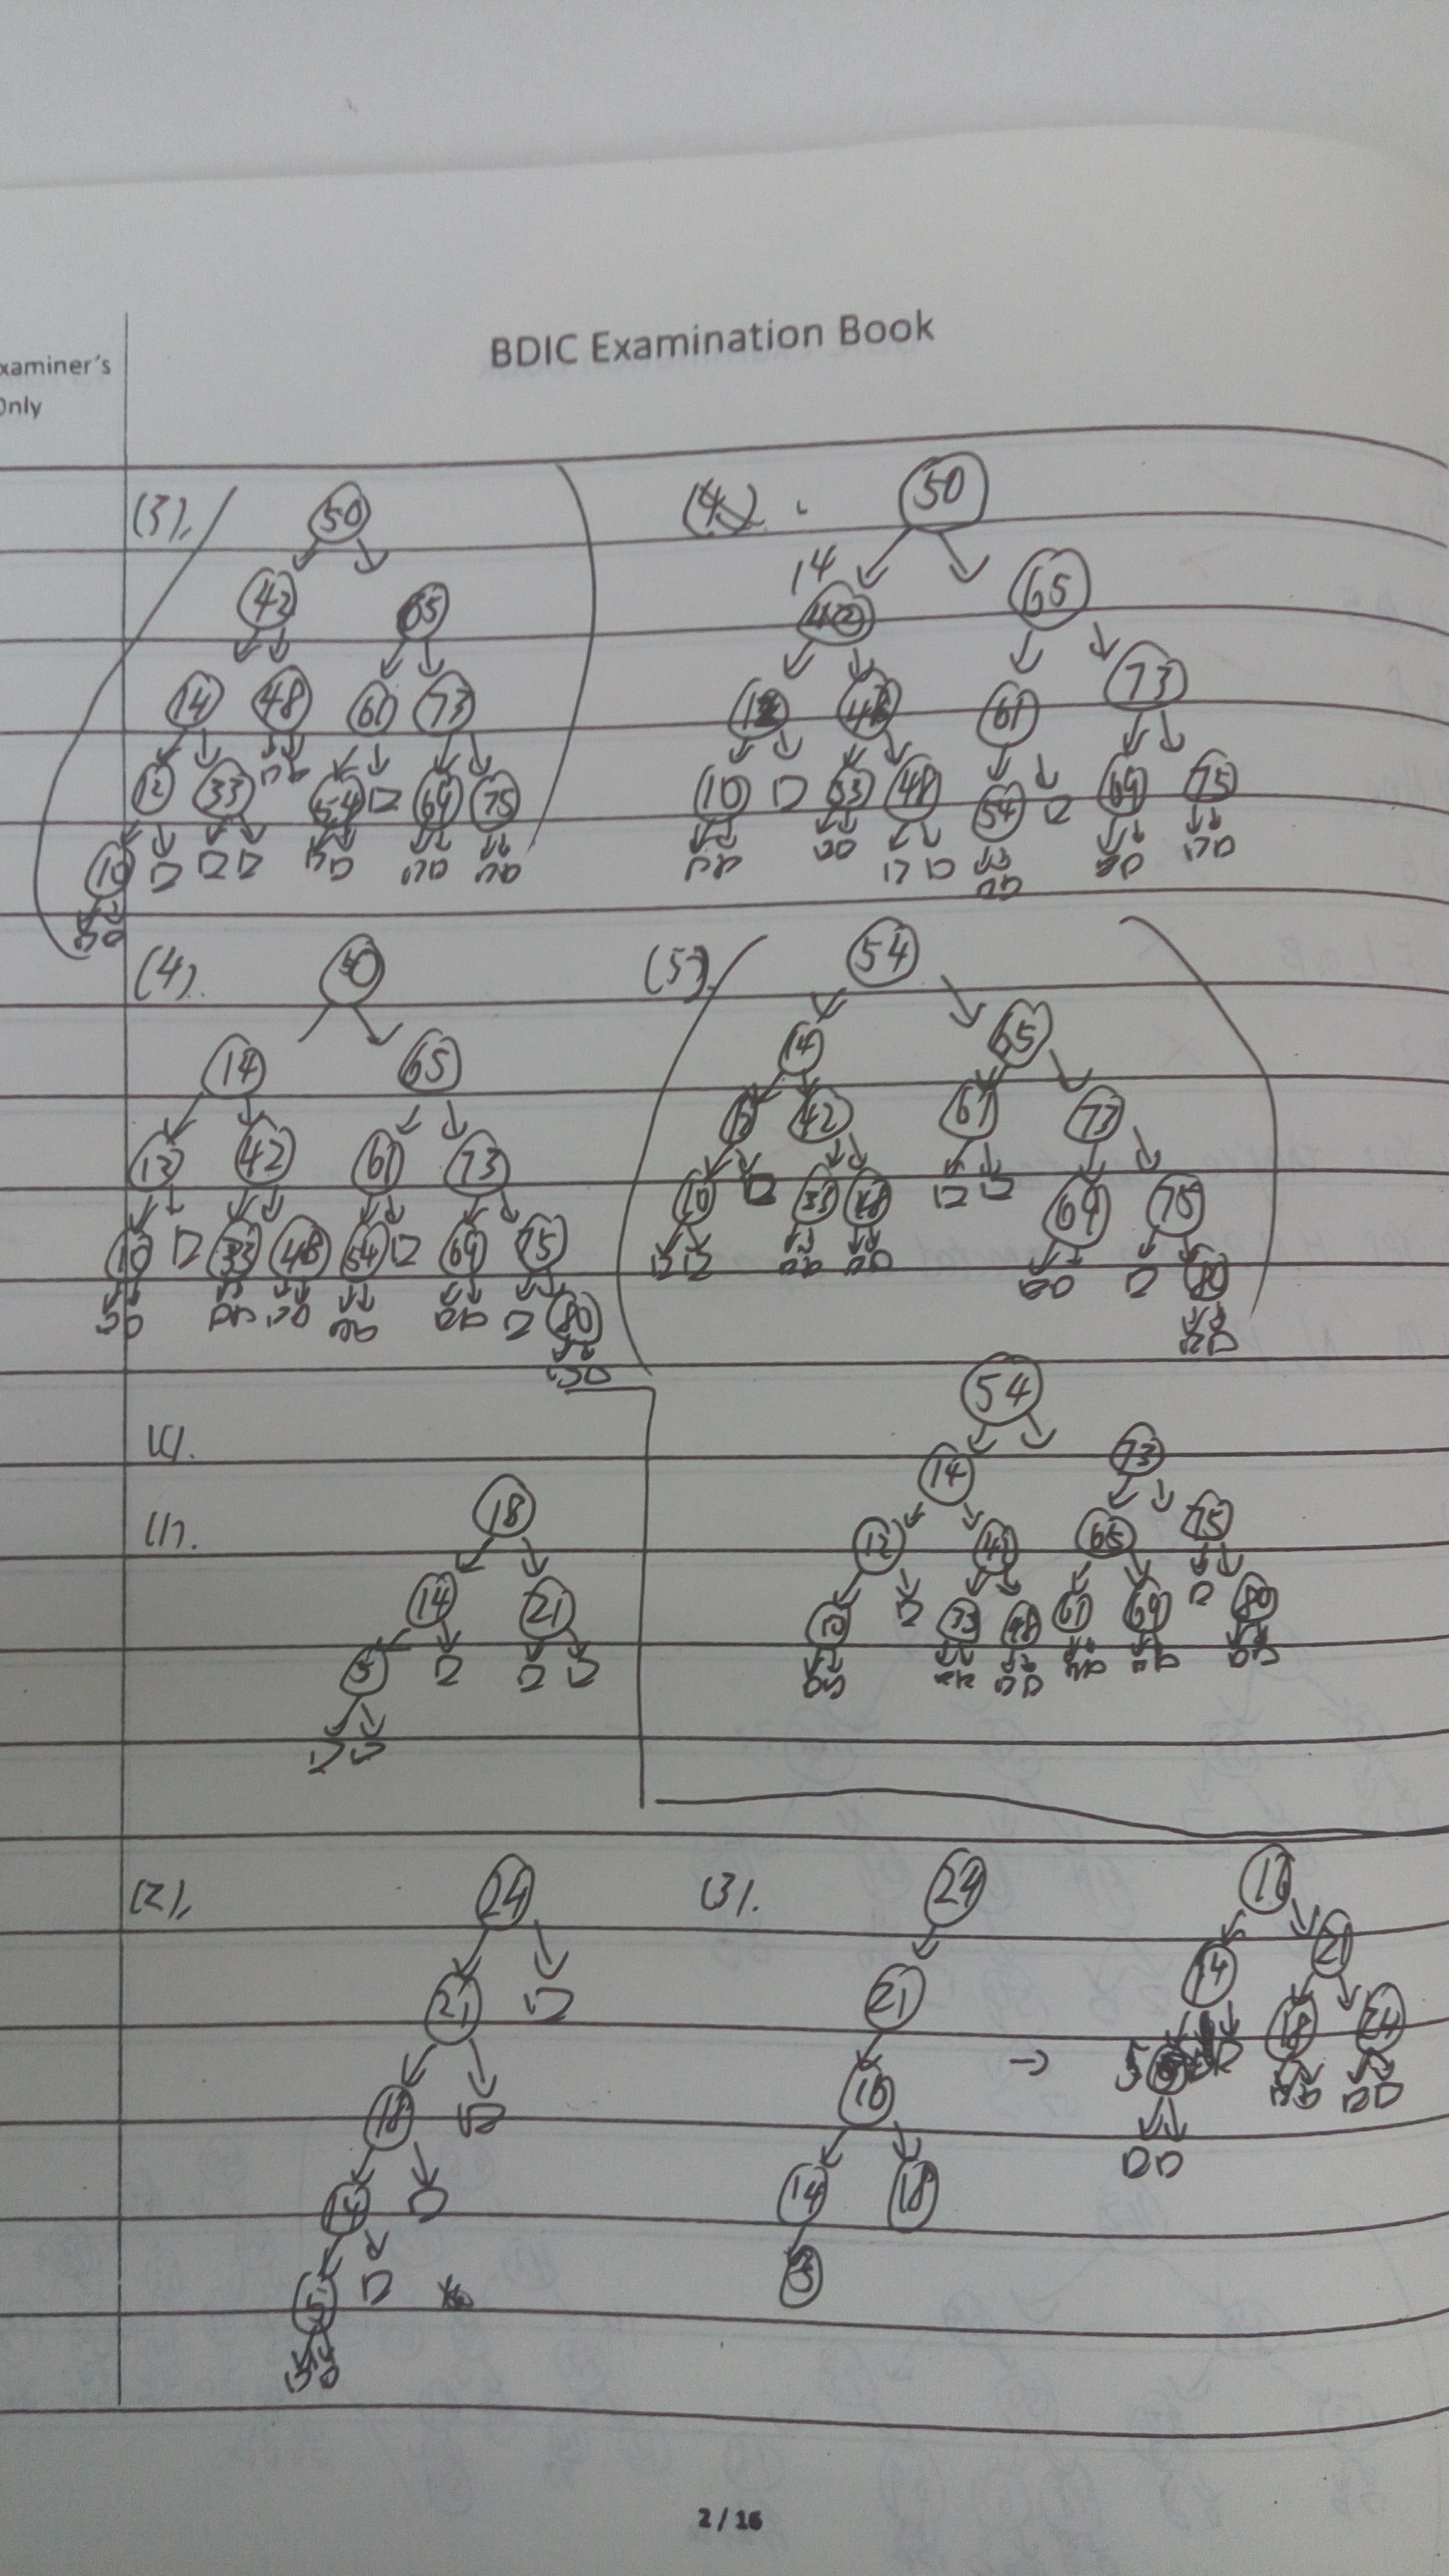 BDIC Examination Book
xaminer's
Only
(3). 50
42 65
14 48 61 73
12 33 54 69 75
10
(4) 50
14
42 65
12 42 61 73
10 33 48 54 69 75
(4). 50
14 65
12 42 61 73
10 33 48 54 69 75
80
(5). 54
14 65
12 42 61 73
10 33 48 69 75
80
54
14 73
12 42 65 75
10 33 48 61 69 80
(1). 18
14 21
5
(2). 24
21
18
14
5
(3). 24
21
16
14 18
5
→
16
14 21
5 18 24
2 / 16